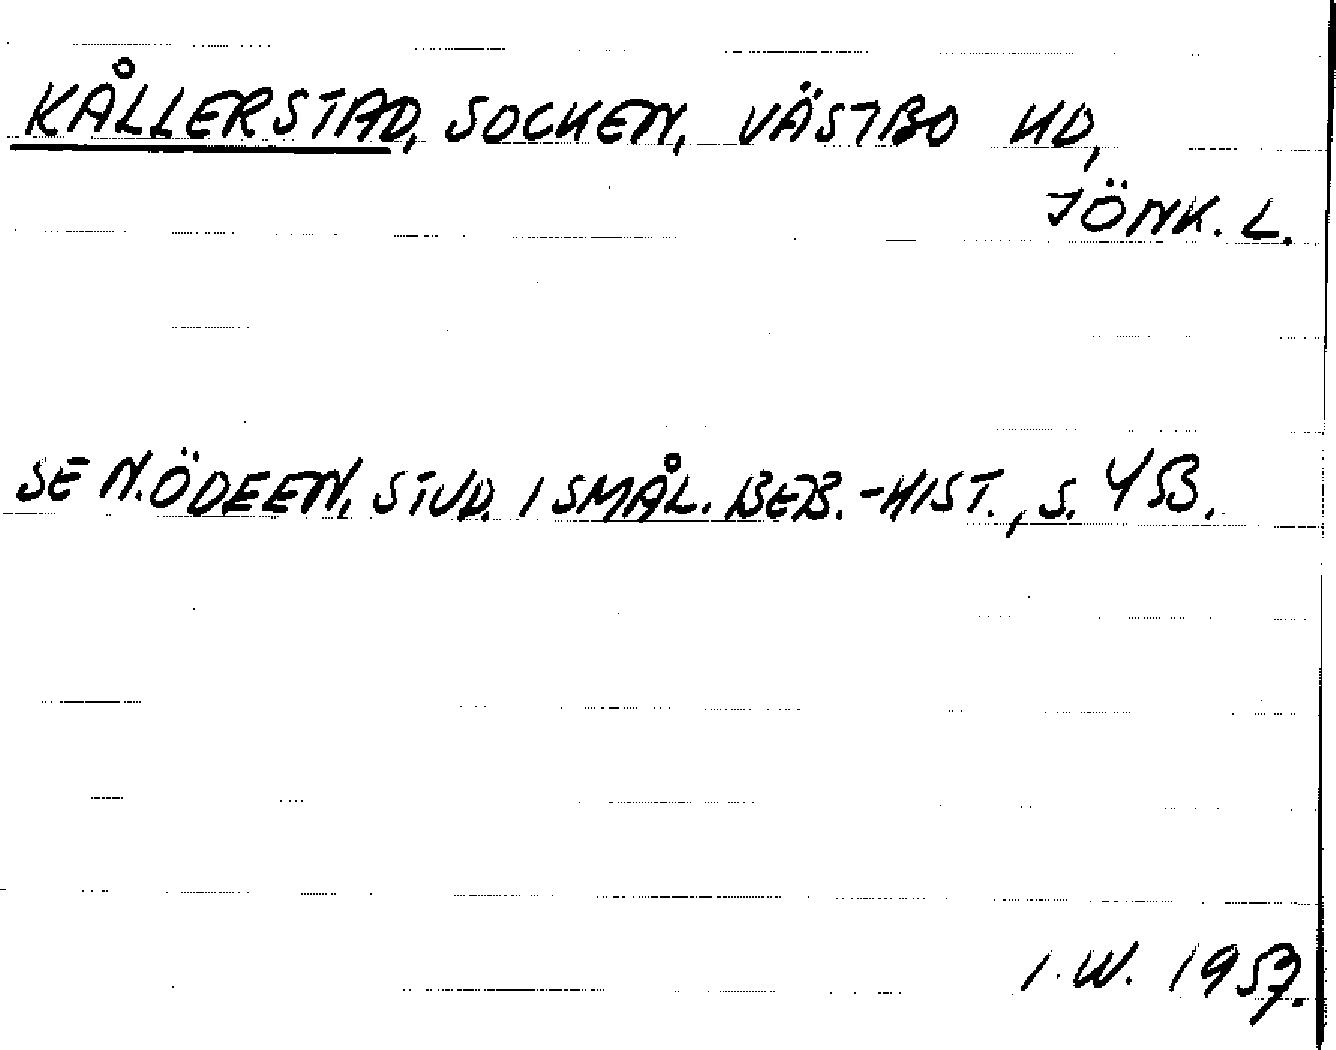 KÅLLERSTAD, SOCKEN, VÄSTBO HD,
JÖNK. L.
SE N. ÖDEEN, STUD. I SMÅL. BEB.-HIST., S. 453.
I. W. 1957.